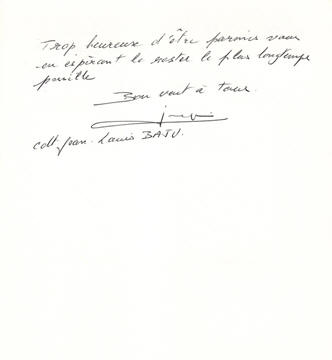 Trop heureuse d'être parmis vous
en espérant le rester le plus longtemps
possible
Bon vent à tous.
coll. Jean-Louis BAJU.